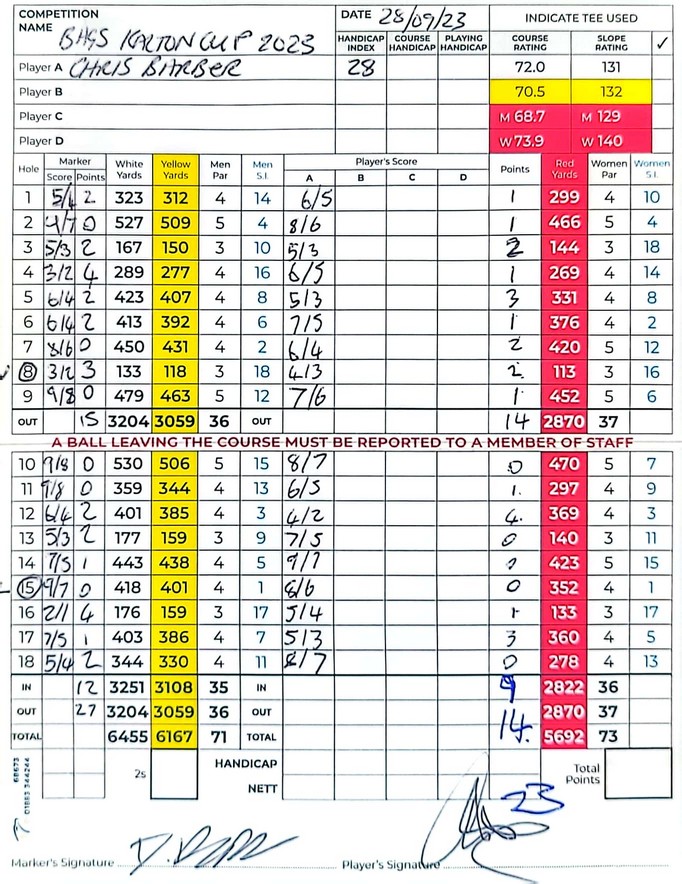 COMPETITION NAME BAGS KALTON CUP 2023 DATE 28/09/23 INDICATE TEE USED
HANDICAP INDEX COURSE HANDICAP PLAYING HANDICAP COURSE RATING SLOPE RATING ✓
Player A CHRIS BARBER 28 72.0 131
Player B 70.5 132
Player C M 68.7 M 129
Player D W 73.9 W 140
Hole Marker Score Points White Yards Yellow Yards Men Par Men S.I. Player's Score A B C D Points Red Yards Women Par Women S.I.
1 5/4 2 323 312 4 14 6/5 1 299 4 10
2 9/7 0 527 509 5 4 8/6 1 466 5 4
3 5/3 2 167 150 3 10 5/3 2 144 3 18
4 3/2 4 289 277 4 16 6/5 1 269 4 14
5 6/4 2 423 407 4 8 5/3 3 331 4 8
6 6/4 2 413 392 4 6 7/5 1 376 4 2
7 8/6 0 450 431 4 2 6/4 2 420 5 12
8 3/2 3 133 118 3 18 4/3 2 113 3 16
9 9/8 0 479 463 5 12 7/6 1 452 5 6
OUT 15 3204 3059 36 OUT 14 2870 37
A BALL LEAVING THE COURSE MUST BE REPORTED TO A MEMBER OF STAFF
10 9/8 0 530 506 5 15 8/7 0 470 5 7
11 9/8 0 359 344 4 13 6/5 1. 297 4 9
12 6/4 2 401 385 4 3 4/2 4. 369 4 3
13 5/3 2 177 159 3 9 7/5 0 140 3 11
14 7/5 1 443 438 4 5 9/7 423 5 15
15 9/7 0 418 401 4 1 8/6 0 352 4 1
16 2/1 4 176 159 3 17 5/4 1 133 3 17
17 7/5 1 403 386 4 7 5/3 3 360 4 5
18 5/4 2 344 330 4 11 8/7 0 278 4 13
IN 12 3251 3108 35 IN 9 2822 36
OUT 27 3204 3059 36 OUT 14. 2870 37
TOTAL 6455 6167 71 TOTAL 5692 73
2s HANDICAP Total Points
NETT 23
01883 344244
Marker's Signature Player's Signature